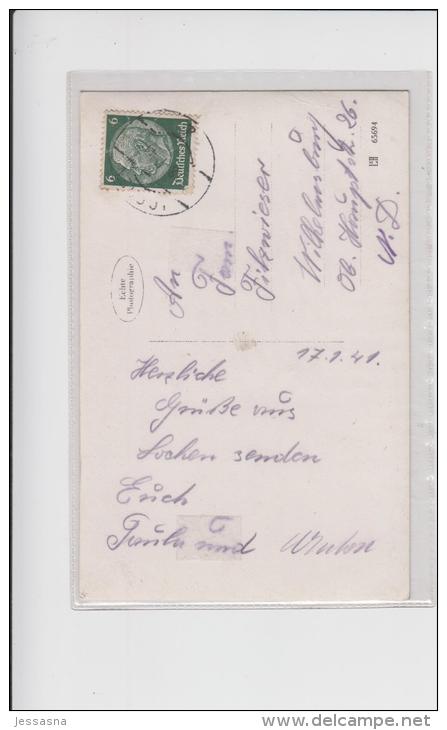 6 6
Deutsches Reich
Echte
Photographie
65694
An
Fam.
Fitzwieser
Wilhelmsburg
Ob. Hauptstr. 26.
N. D.
17.1.41.
Herzliche
Grüße aus
senden
Euch
Paula und
jessasna
delcampe.net